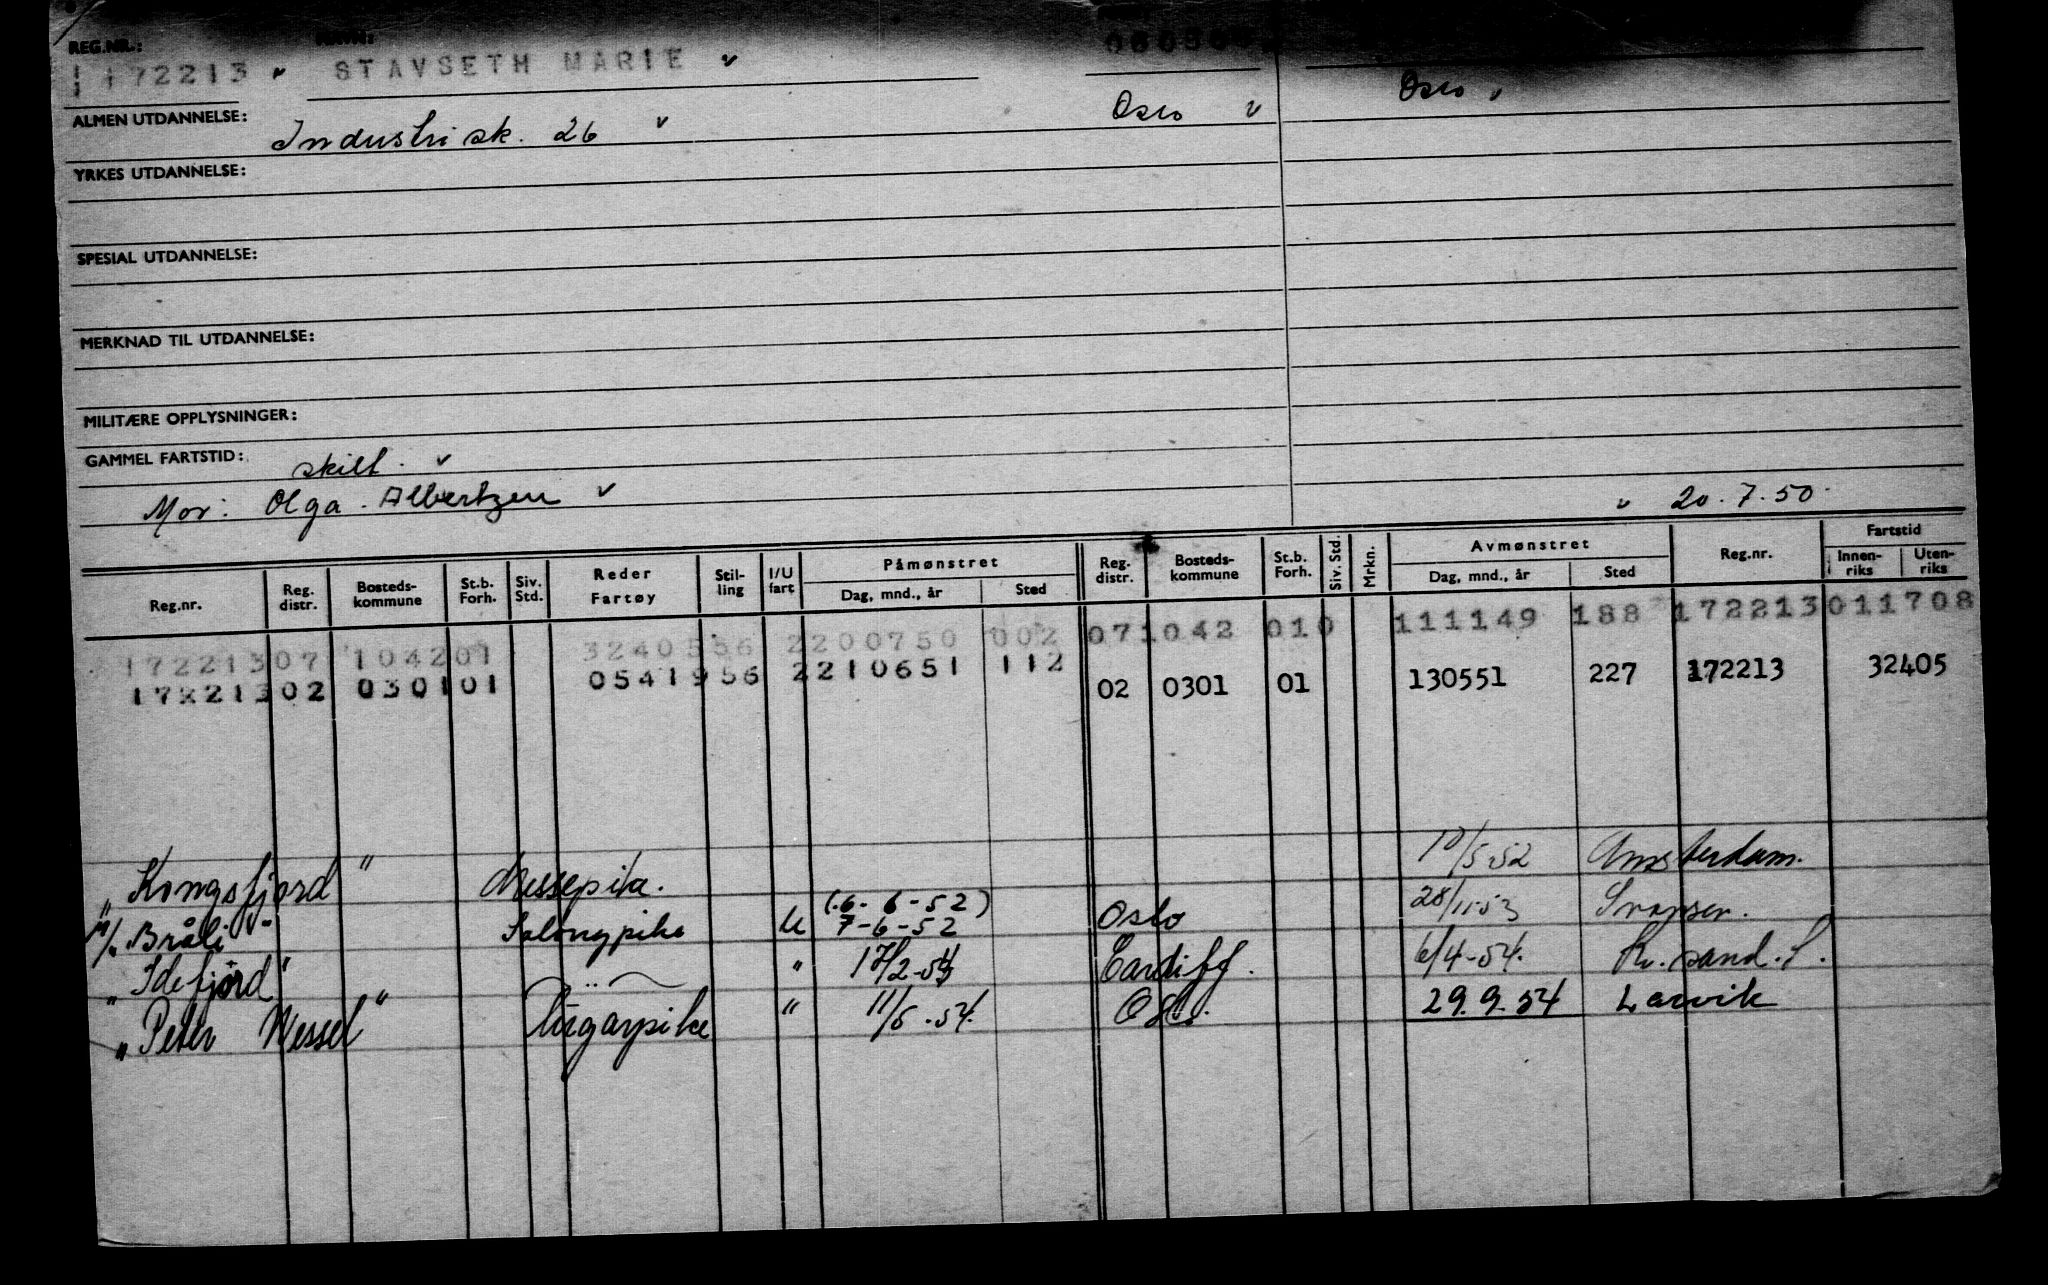 REG.NR.: NAVN:
172213 STAVSETH MARIE
ALMEN UTDANNELSE: Industrisk. 26 Oslo Oslo
YRKES UTDANNELSE:
SPESIAL UTDANNELSE:
MERKNAD TIL UTDANNELSE:
MILITÆRE OPPLYSNINGER:
GAMMEL FARTSTID: skilt.
Mor: Olga Albertzen " 20.7.50.
Reg.nr. Reg. distr. Bosteds-kommune St.b. Forh. Siv. Std. Reder Fartøy Stil-ling I/U fart Påmønstret Dag, mnd., år Sted Reg. distr. Bosteds-kommune St.b. Forh. Siv. Std. Mrkn. Avmønstret Dag, mnd., år Sted Reg.nr. Fartstid Innen-riks Uten-riks
071042 010 111149 188 172213 011708
17221307 104201 3240556 2200750 002
17221302 030101 0541956 2210651 112 02 0301 01 130551 227 172213 32405
" Kongsfjord " Messepike. 10/5 52 Amsterdam.
(.6-6-52)
M/S. Bråli " Salongpike U 7-6-52 Oslo 28/11-53
" Idefjord " " 17/2-54 Cardiff. 6/4-54. Kr.sand.S.
" Peter Wessel " Lugarpike " 11/5.54. Oslo. 29.9.54 Larvik